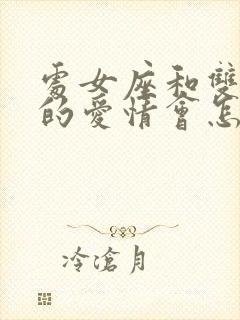 處女座和雙
的愛情會怎
冷滄月